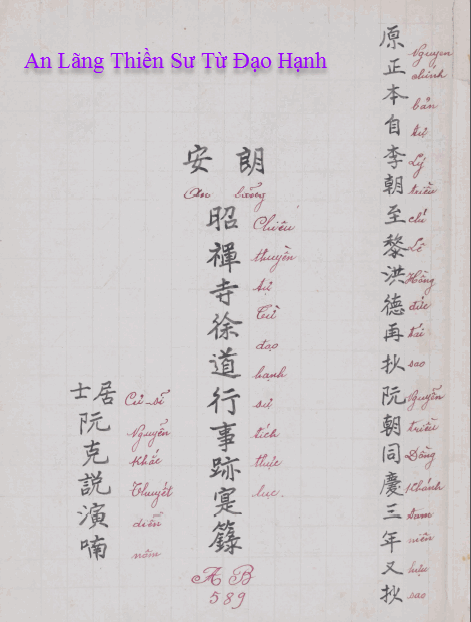 An Lãng Thiền Sư Từ Đạo Hạnh
原正本自李朝至黎洪德再抄阮朝同慶三年又抄
Nguyên chính bản tự Lý triều chí Lê Hồng đức tái sao Nguyễn triều Đồng Khánh tam niên hựu sao
安 朗
An Lãng
昭禪寺徐道行事跡寔籙
Chiêu thuyền tự Từ đạo hạnh sự tích thực lục.
士居
Cư_sĩ
阮克説演喃
Nguyễn Khắc Thuyết diễn nôm
AB
589